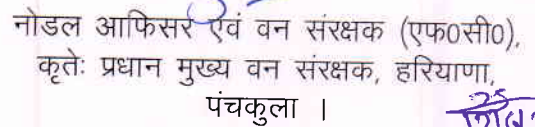 नोडल आफिसर एवं वन संरक्षक (एफ0सी0),
कृतेः प्रधान मुख्य वन संरक्षक, हरियाणा,
पंचकुला ।